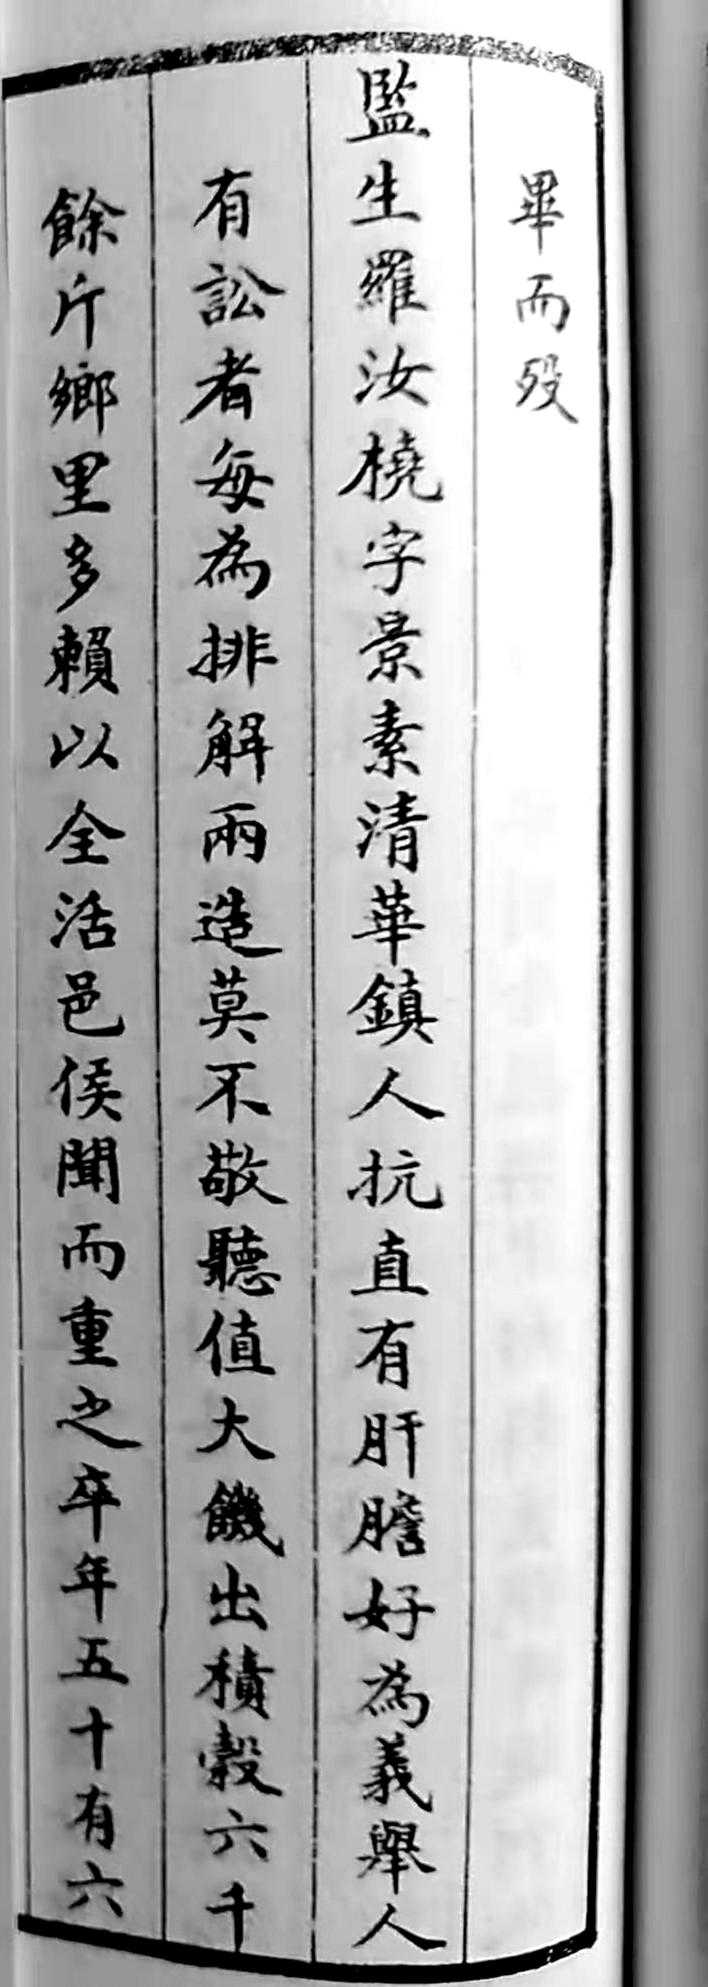 畢而歿
監生羅汝橈字景素清華鎮人抗直有肝膽好為義舉人
有訟者每為排解兩造莫不敬聽值大饑出積穀六千
餘斤鄉里多賴以全活邑侯聞而重之卒年五十有六